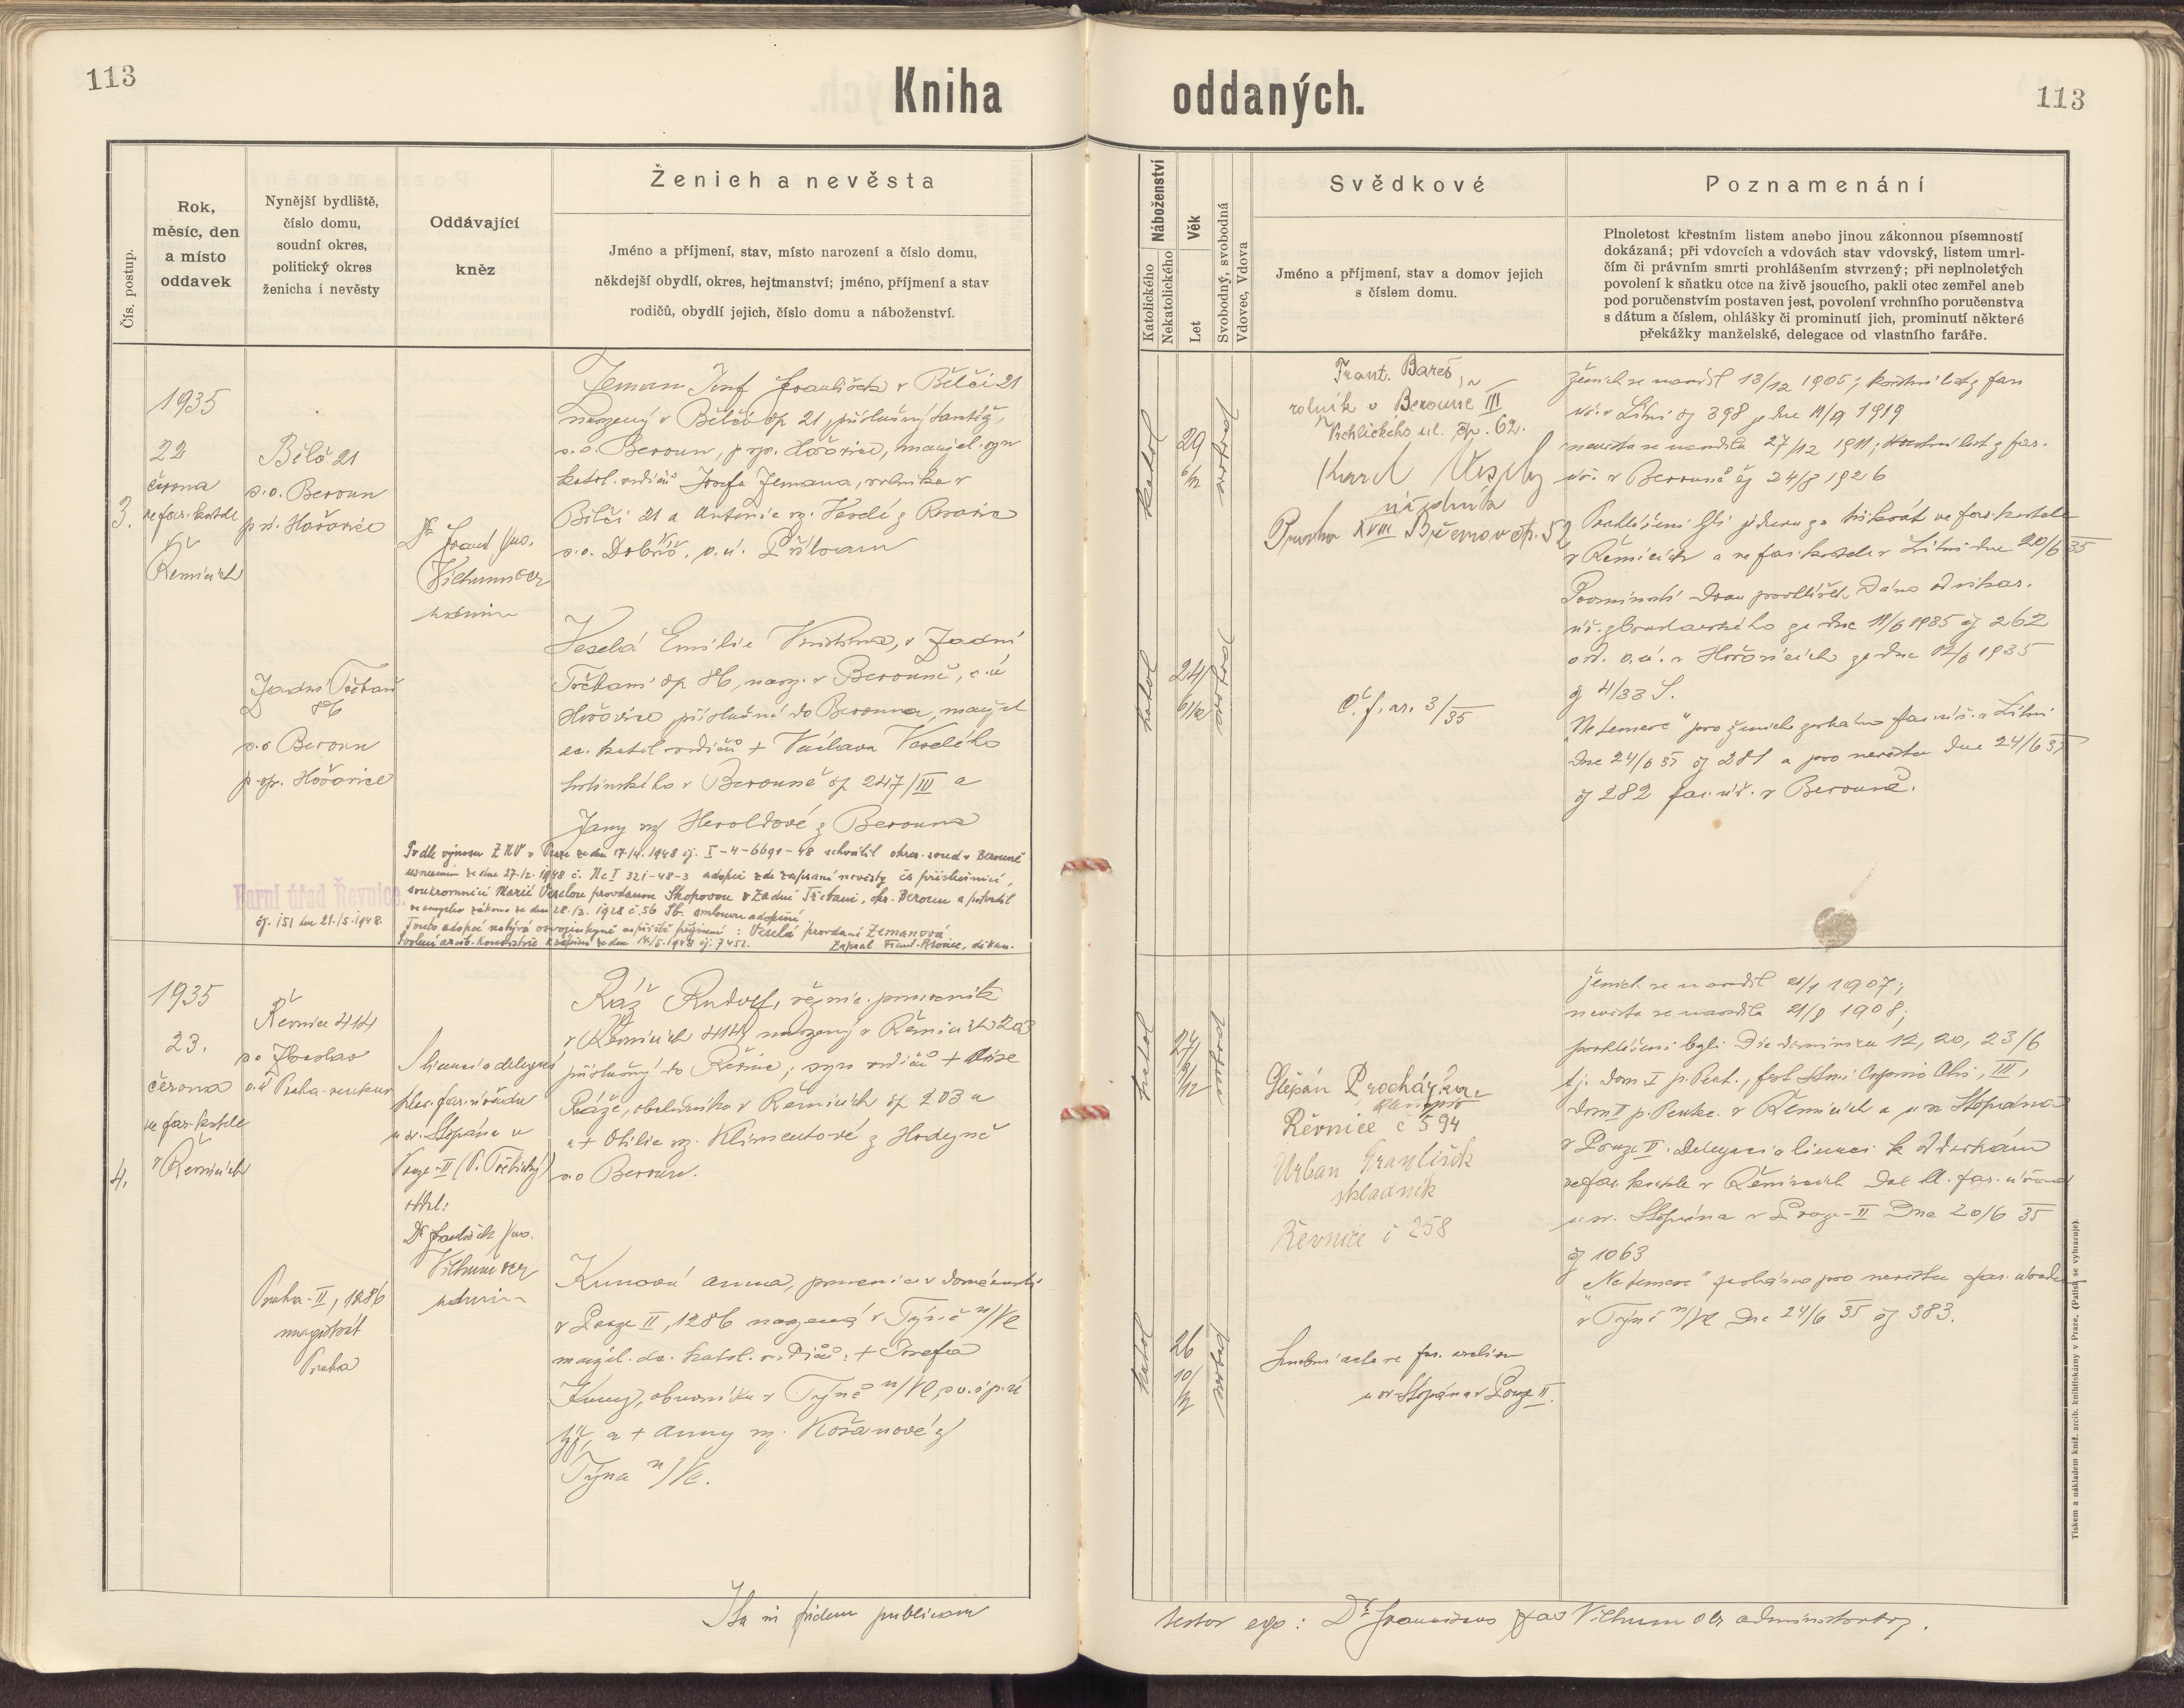 113
Kniha oddaných.
113
Čís. postup.
Rok,
měsíc, den
a místo
oddavek
Nynější bydliště,
číslo domu,
soudní okres,
politický okres
ženicha i nevěsty
Oddávající
kněz
Ženich a nevěsta
Jméno a příjmení, stav, místo narození a číslo domu,
někdejší obydlí, okres, hejtmanství; jméno, příjmení a stav
rodičů, obydlí jejich, číslo domu a náboženství.
Náboženství
Katolického
Nekatolického
Věk
Let
Svobodný, svobodná
Vdovec, Vdova
Svědkové
Jméno a příjmení, stav a domov jejich
s číslem domu.
Poznamenání
Plnoletost křestním listem anebo jinou zákonnou písemností
dokázaná; při vdovcích a vdovách stav vdovský, listem umrl-
čím či právním smrti prohlášením stvrzený; při neplnoletých
povolení k sňatku otce na živě jsoucího, pakli otec zemřel aneb
pod poručenstvím postaven jest, povolení vrchního poručenstva
s dátum a číslem, ohlášky či prominutí jich, prominutí některé
překážky manželské, delegace od vlastního faráře.
3.
1935
22
června
ve far. kostele
v
Řevnicích
Běleč 21
s.o. Beroun
p.ú. Hořovice
Zadní Třebaň
86
s.o Beroun
p. op. Hořovice
Dr. Frant
Vilhum
Zeman Josef František v Bělči 21
narozený v Bělči čp 21, příslušný tamtéž,
s.o. Beroun, p. op. Hořovice, manžel. syn
katol. rodičů Josefa Zemana, rolníka v
Bělči 21 a Antonie roz. Veselé z
s.o. Dobříš, p.ú. Příbram
Veselá Emilie, v Zadní
Třebani čp 86, naroz. v Berouně, p.ú
Hořovice příslušná do Berouna, manžel.
dc. katol. rodičů + Václava Veselého
hostinského v Berouně čp 247/III a
Jany roz Heroldové z Berouna
Podle výnosu ZNV v Praze ze dne 17./4. 1948 čj. I-4-6691-48 schválil okres. soud v Berouně
usnesením ze dne 27./2. 1948 č. Nc I 321-48-3 adopci zde zapsané nevěsty
soukromnicí Marií Veselou provdanou Skopovou v Zadní Třebani, okr. Beroun a potvrdil
ve smyslu zákona ze dne 28./3. 1928 č. 56 Sb. smlouvu adopční
Touto adopcí nabývá osvojenkyně příjmení: Veselá provdaná Zemanová
Zapsal Frant. děkan.
Farní úřad Řevnice.
čj. 151 dne 21./5. 1948.
katol
29
6/12
svobod
katol
24
svobod
Frant. Bareš,
rolník v Berouně III
Vrchlického ul. čp. 62.
Karel Veselý
úředník
Praha XVIII Břevnov čp. 52
Č. f. ar. 3/35
Ženich se narodil 13/12 1905; křestní list z far
úř. v Litni čj 398 z dne 11/9 1919
nevěsta se narodila 27/12 1911; křestní list z far.
úř. v Berouně čj 24/8 1926
Prohlášeni byli jednou za třikrát ve far. kostele
v Řevnicích a ve far. kostele v Litni dne 20/6 35
Prominutí dvou prohlášek dáno od vikar.
úř. ze dne 11/6 1935 čj 262
a od. o.ú. v Hořovicích ze dne 12/6 1935
čj 4/33 S.
„Ne temere" pro ženicha zasláno far. úř. v Litni
dne 24/6 35 čj 281 a pro nevěstu dne 24/6 35
čj 282 far. úř. v Berouně.
4.
1935
23.
června
ve far. kostele
v Řevnicích
Řevnice 414
s.o Zbraslav
o.ú Praha-venkov
Praha-II, 1286
magistrát
Praha
S licencí a delegací
far. úřadu
u sv. Štěpána v
Praze-II
oddal:
Dr František
Vilhum
Ráž Rudolf, řeznic. pomocník
v Řevnicích 414, narozený v Řevnicích 203
příslušný do Řevnic; syn rodičů +
Ráže, obchodníka v Řevnicích čp 203 a
+ Otilie roz. Klimentové z Hodyně
s.o Beroun.
Kunová Anna, pomocnice v domácnosti
v Praze II, 1286 narozená v Týně n/Vl
manžel. dc. katol. rodičů: + Josefa
Kuny, obuvníka v Týně n/Vl,
a + Anny roz. Kořanové z
Týna n/Vl.
katol
27
svobod
katol
26
10/12
svobod
Štěpán Procházka
Řevnice č 594
Urban František
skladník
Řevnice č 258
Snubní akta ve far. archivu
u sv Štěpána v Praze II.
Ženich se narodil 1907;
nevěsta se narodila 1908;
prohlášeni byli: Die dominica 12, 20, 23/6
tj. Dom. I p. Pent.
Dom II p. Pentec. v Řevnicích a u sv Štěpána
v Praze II. Delegaci a licenci k oddavkám
ve far. kostele v Řevnicích dal far. úřad
u sv. Štěpána v Praze-II dne 20/6 35
čj 1063
„Ne temere" zasláno pro nevěstu far. úřadu
v Týně n/Vl dne 24/6 35 čj 383.
Ita in fidem publicam
testor ego: Dr. Franciscus Vilhum administrator.
Tiskem a nákladem kníž. arcib. knihtiskárny v Praze. (Patisk se vyhrazuje).